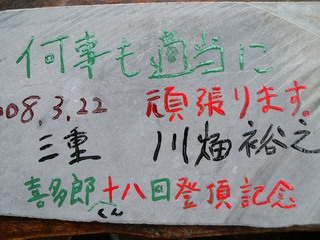 何事も適当に
008.3.22 頑張ります。
三重 川畑裕之
喜多郎くん十八回登頂記念